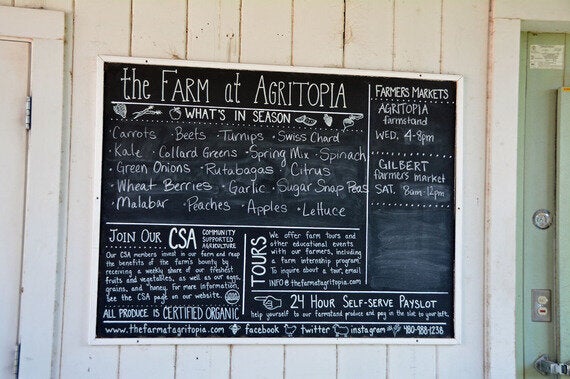 the FARM at AGRITOPIA
WHAT'S IN SEASON
·Carrots ·Beets ·Turnips ·Swiss Chard
·Kale ·Collard Greens ·Spring Mix ·Spinach
·Green Onions ·Rutabagas ·Citrus
·Wheat Berries ·Garlic ·Sugar Snap Peas
·Malabar ·Peaches ·Apples ·Lettuce
FARMERS MARKETS
AGRITOPIA
farmstand
WED. 4-8pm
GILBERT
farmers market
SAT. 8am-12pm
JOIN OUR CSA COMMUNITY
SUPPORTED
AGRICULTURE
Our CSA members invest in our farm and reap
the benefits of the farm's bounty by
receiving a weekly share of our freshest
fruits and vegetables, as well as our eggs,
grains, and honey. For more information,
see the CSA page on our website.
ALL PRODUCE IS CERTIFIED ORGANIC
TOURS
We offer farm tours and
other educational events
with our farmers, including
a farm internship program.
To inquire about a tour, email
INFO@thefarmatagritopia.com
24 HOUR SELF-SERVE PAYSLOT
help yourself to our farmstand produce and pay in the slot to your left.
www.thefarmatagritopia.com facebook twitter instagram 480-988-1238